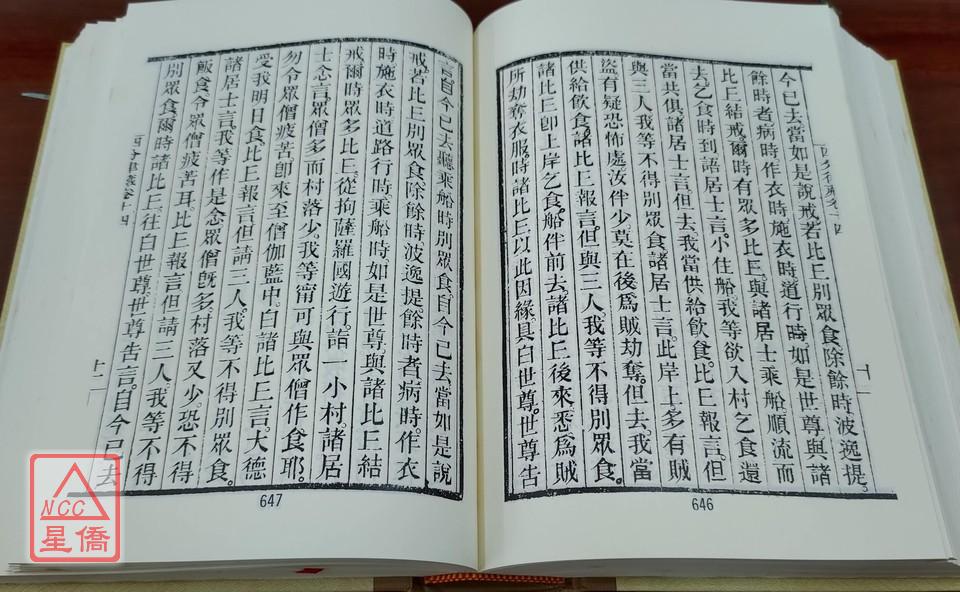 今已去當如是說戒若比丘別眾食除餘時波逸提
餘時者病時作衣時施衣時道行時如是世尊與諸
比丘結戒爾時有眾多比丘與諸居士乘船順流而
去乞食時到語居士言小住船我等欲入村乞食還
當共俱諸居士言但去我當供給飲食比丘報言但
與三人我等不得別眾食諸居士言此岸上多有賊
盜有疑恐怖處汝伴少莫在後為賊劫奪但去我當
供給飲食諸比丘報言但與三人我等不得別眾食
諸比丘即上岸乞食船伴前去諸比丘後來悉為賊
所劫奪衣服時諸比丘以此因緣具白世尊世尊告
646
言自今已去聽乘船時別眾食自今已去當如是說
戒若比丘別眾食除餘時波逸提餘時者病時作衣
時施衣時道路行時乘船時如是世尊與諸比丘結
戒爾時眾多比丘從拘薩羅國遊行詣一小村諸居
士念言眾僧多而村落少我等甯可與眾僧作食耶
勿令眾僧疲苦即來至僧伽藍中白諸比丘言大德
受我明日食比丘報言但請三人我等不得別眾食
諸居士言我等作是念眾僧既多村落又少恐不得
飯食令眾僧疲苦耳比丘報言但請三人我等不得
別眾食爾時諸比丘往白世尊世尊告言自今已去
四分律藏卷十四
十二
647
NCC
星僑